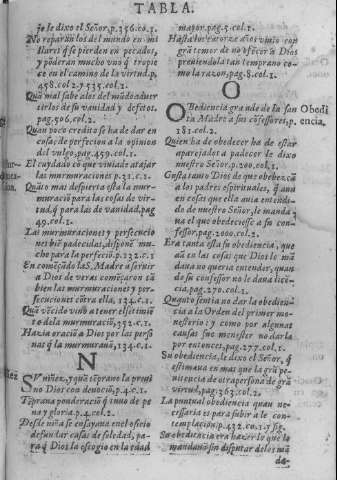 TABLA.
se le dixo el Señor.p.356.co.1.
No reparan los del mundo en mi
llares q̃ se pierden en pecados,
y põderan mucho uno q̃ tropie
ce en el camino de la virtud.p.
458.col.2.y 535.col.1.
Quã mal sabe a los del mũdo aduer
tirlos de su vanidad y defetos.
pag.506.col.2.
Quan poco credito se ha de dar en
cosas de perfecion a la opinion
del vulgo, pag.459.col.1.
El cuydado cõ que viuia de atajar
las murmuraciones p.21.c.1.
Quãto mas despierto esta la mur-
muraciõ para las cosas de vir-
tud, q̃ para las de vanidad.pag
49.col.1.
Las murmuraciones y persecucio
nes biẽ padecidas, disponẽ mu-
cho para la perfeciõ.p.132.c.1
En començãdo la S. Madre a seruir
a Dios de veras começaron tã
bien las murmuraciones y per-
secuciones cõtra ella, 134.c.1.
Quã vẽcido vino a tener el sẽtimiẽ
to de la murmuraciõ, 132.c.1.
Hazia oraciõ a Dios por las perso
nas q̃ la murmurauã, 134.c.1.
N
S Vniñez, y quã tẽprano la preui
no Dios con deuociõ, p.4.c.1.
Tẽprana ponderaciõ q̃ tuuo de pe
na y gloria.p.4.col.2.
Desde niña se ensayaua en el oficio
de fundar casas de soledad, pa-
ra q̃ Dios la escogio en la edad
mayor.pag.5.col.1.
Hasta los catorze años viuio con
grã temor de no ofẽder a Dios
preniendola tan temprano co-
mo la razon, pag.8.col.1.
O
OBediencia grande de la san
ta Madre a sus cõfessores, p.
181.col.2.
Obedi
encia.
Quien ha de obedecer ha de estar
aparejado a padecer le dixo
nuestro Señor.p.200.col.1.
Gusta tanto Dios de que obedezcã
a los padres espirituales, q̃ aun
en cosas que ella auia entendi-
do de nuestro Señor, le manda
ua el que obedeciesse a su con-
fessor.pag.200.col.2.
Era tanta esta su obediencia, que
aũ en las cosas que Dios le mã
daua no queria entender, quan
do su confessor no le daua licẽ-
cia, pag.270.col.1.
Quãto sentia no dar la obediẽn-
cia a la Orden del primer mo-
nesterio y como por algunas
causas fue menester no darla
por entonces, pag.277.col.1.
Su obediencia, le dixo el Señor, q̃
estimaua en mas que la grã pe-
nitencia de otra persona de grã
virtud, pag.363.col.2.
La puntual obediencia quan ne-
cessaria es para subir a la con-
templacion, p.432.co.1.y sig.
Su obediencia era hazer lo que lo
mandauã sin disputar de los mã
da-